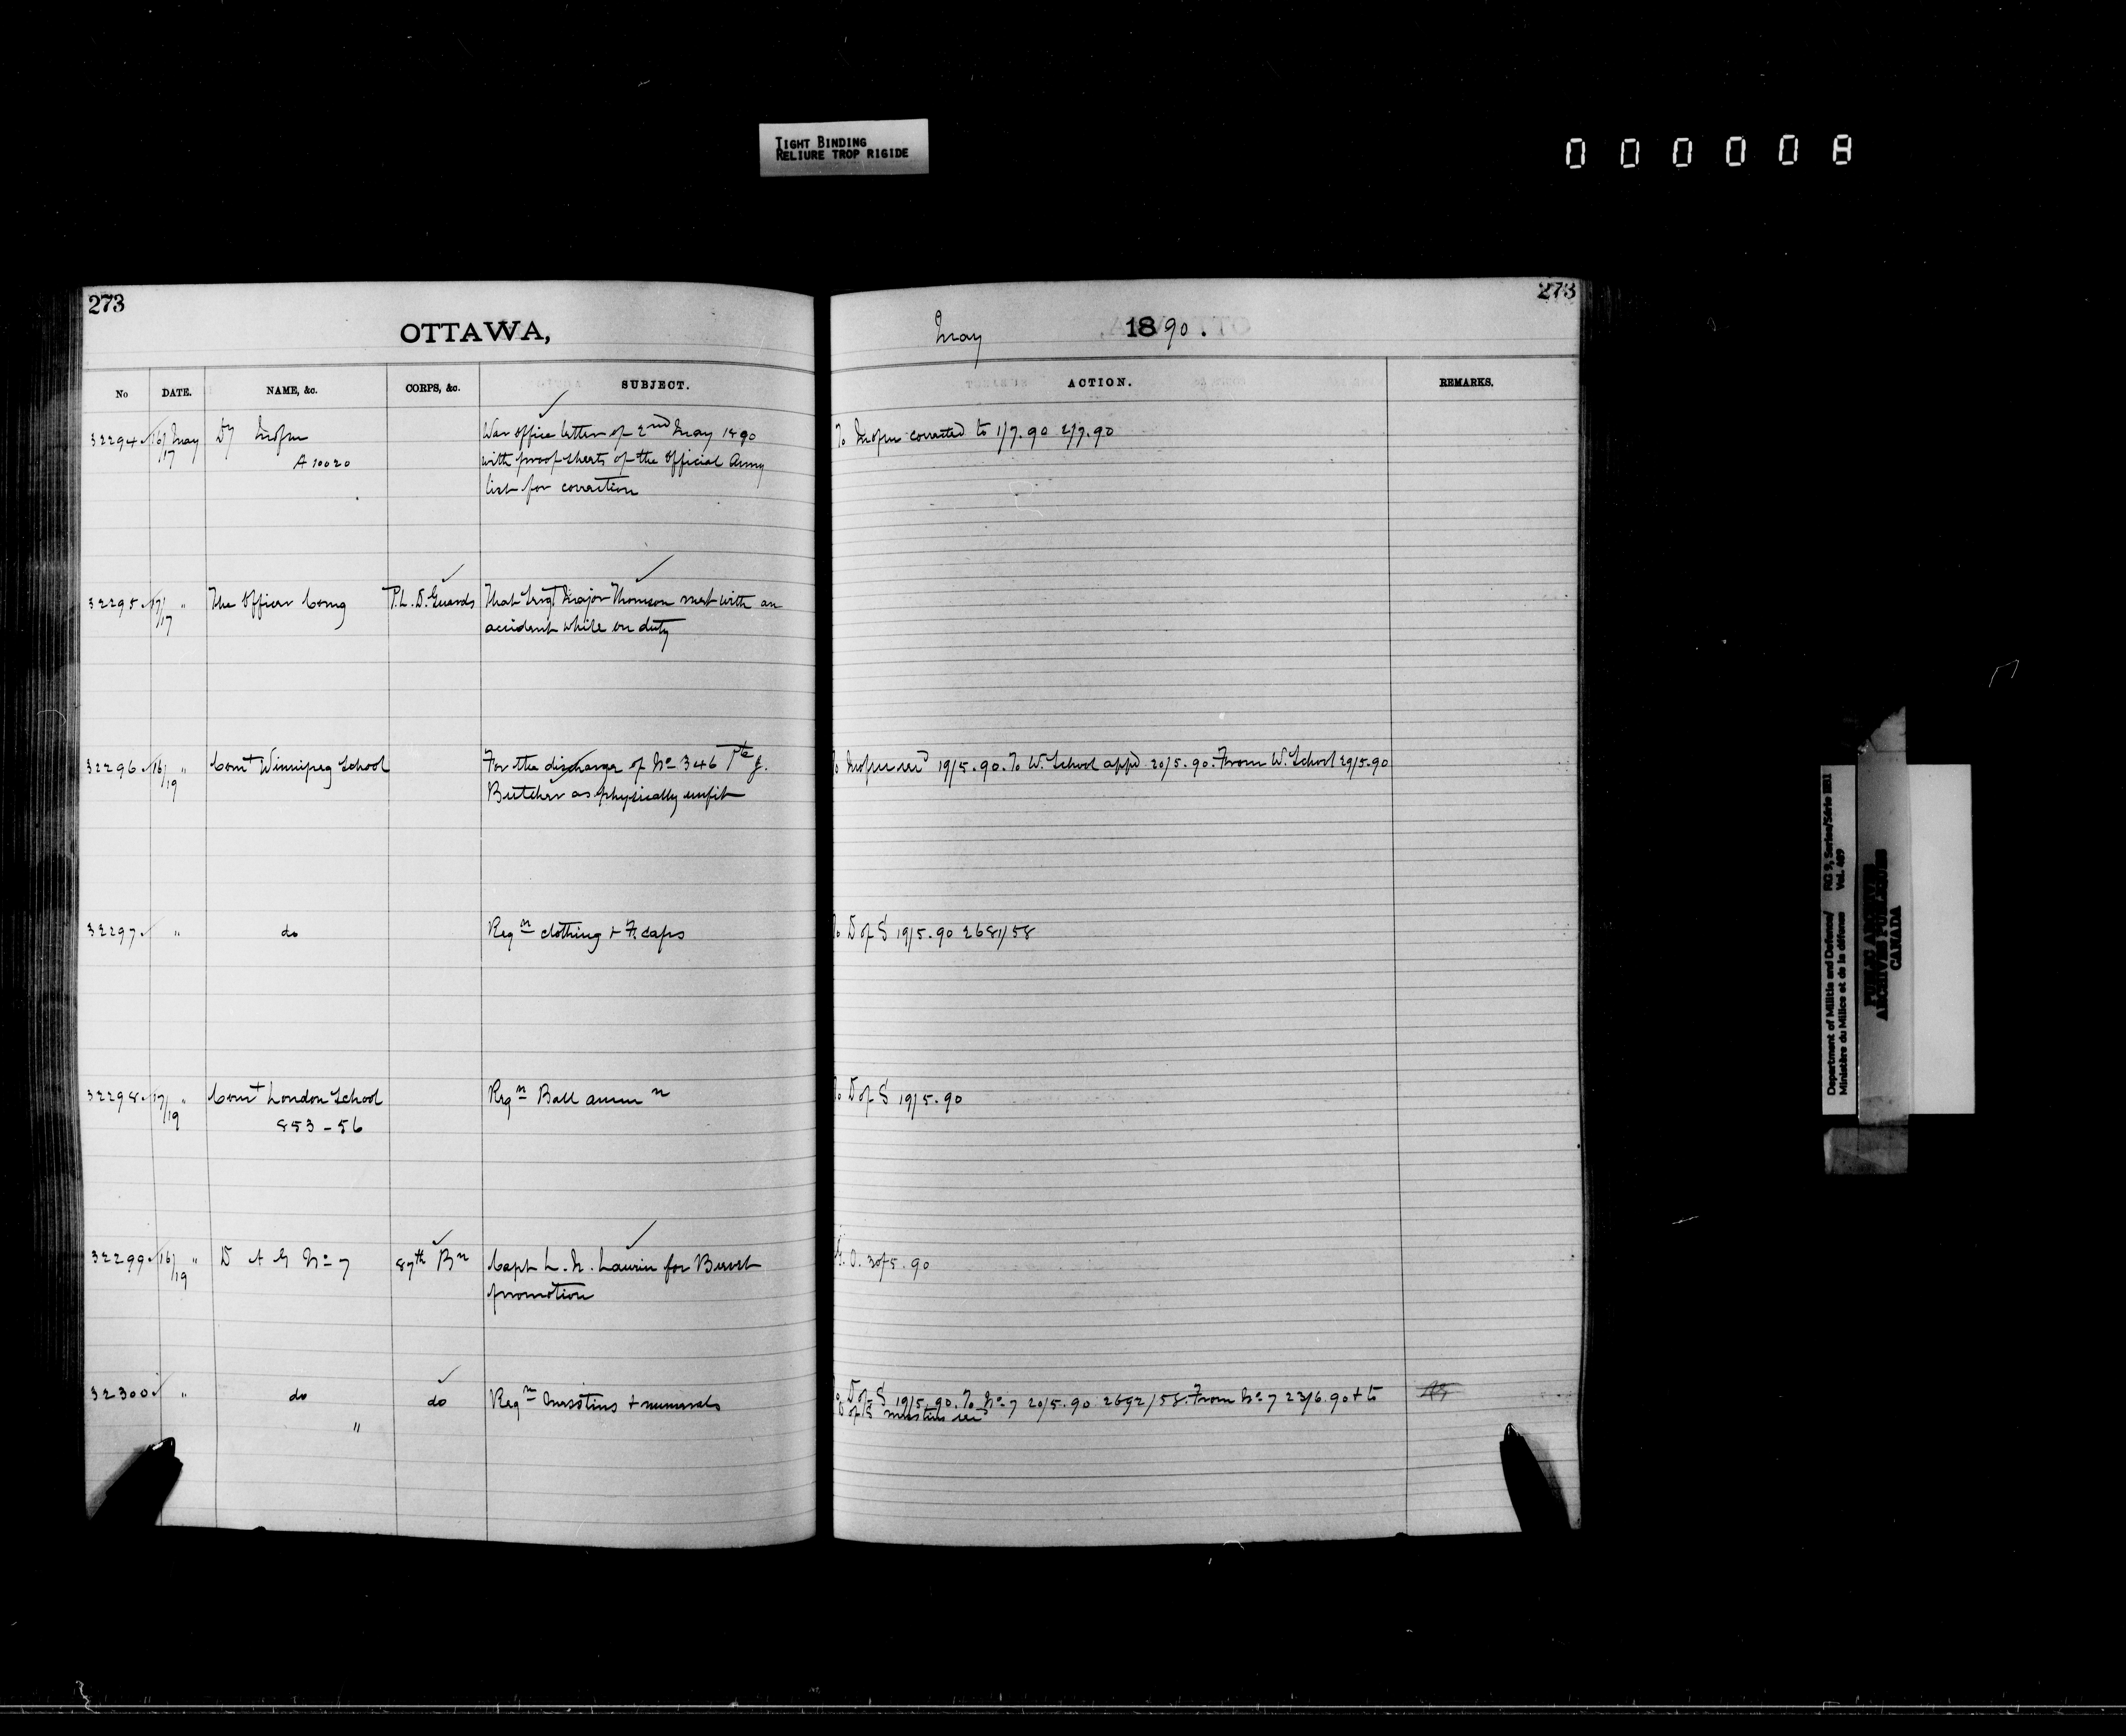 TIGHT BINDING
RELIURE TROP RIGIDE
000008
273
OTTAWA,
No DATE. NAME, &c. CORPS, &c. SUBJECT.
32294 16/17 May Dy Mofm War Office letter of 2nd May 1890
A 10020 with proof sheets of the Official Army
list for correction
32295 17/17 " The Officer Comg P.L.D. Guards That Sergt Major Thomson met with an
accident while on duty
32296 16/19 " Comt Winnipeg School For the discharge of No 346 Pte J.
Butcher as physically unfit
32297 " do Reqn clothing + F. caps
32298 17/19 " Comt London School Reqn Ball ammn
853-56
32299 16/19 " D A G No 7 87th Bn Capt L. N. Laurin for Brevet
promotion
32300 " do do Reqn + numerals
"
273
May 1890.
ACTION. REMARKS.
To Mofm corrected to 1/7.90 2/7.90
To Mofm 19/5.90. To W. School appd 20/5.90. From W. School 29/5.90
To D of S 19/5.90 2681/58
To D of S 19/5.90
G.O. 30/5.90
To D of S 19/5.90. To No 7 20/5.90 2692/58. From No 7 23/6.90 + to
D of S
Department of Militia and Defence/
Ministère du Milice et de la défense
RG 9, Series/Série IIB1
Vol. 489
PUBLIC ARCHIVES
ARCHIVES PUBLIQUES
CANADA